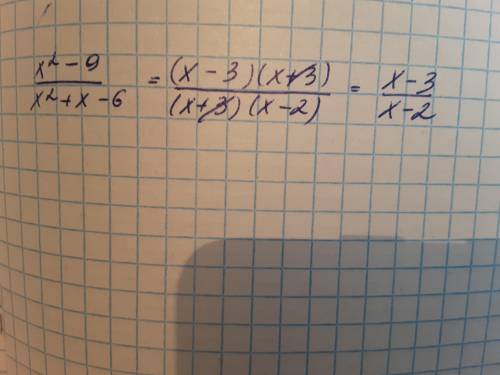 x² - 9 / x² + x - 6 = (x - 3)(x + 3) / (x + 3)(x - 2) = x - 3 / x - 2